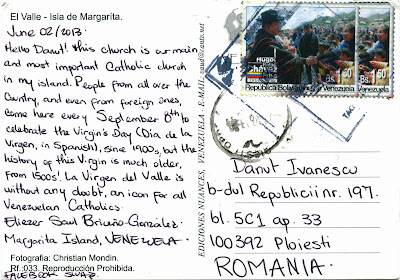 El Valle - Isla de Margarita.
June 02/2013.
Hello Danut! This church is our main
and most important Catholic church
in my island. People from all over the
Country, and even from foreign ones,
come here every September 8th to
celebrate the Virgin's Day (Día de la
Virgen, in Spanish), since 1900s, but the
history of this Virgin is much older,
from 1500s! La Virgen del Valle is
without any doubt, an icon for all
Venezuelan Catholics.
Eliezer Saul Briceño-González.
Margarita Island, VENEZUELA.
FACEBOOK SWAP
Fotografía: Christian Mondin.
Rf.:033. Reproducción Prohibida.
EDICIONES NUANCES, VENEZUELA - E-MAIL:
Hugo
Chávez
Bs. 1,60
Bs. 1,60
República Bolivariana de Venezuela
Danut Ivanescu
b-dul Republicii nr. 197.
bl. 5C1 ap. 33
100392 Ploiesti
ROMANIA.